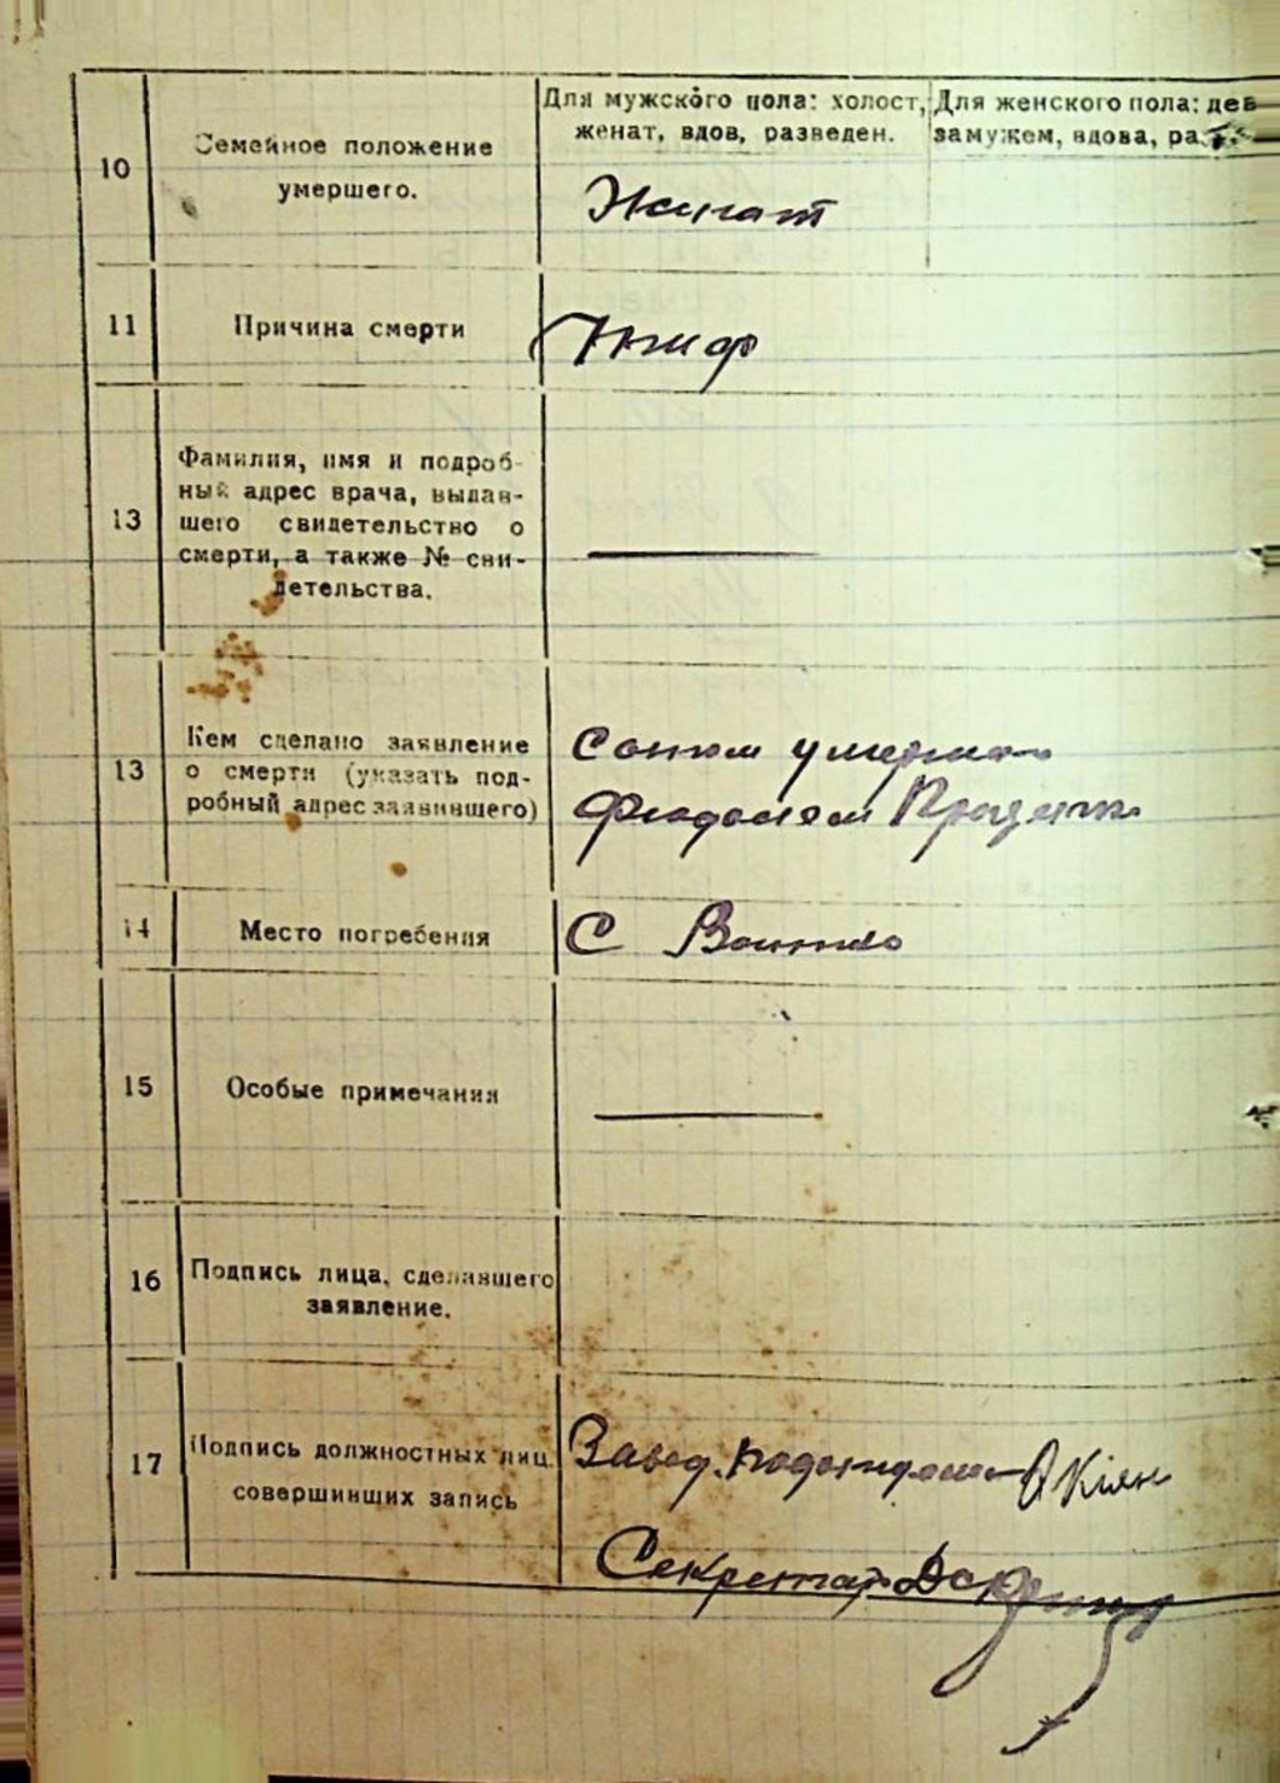 Для мужского пола: холост, Для женского пола: дев
женат, вдов, разведен. замужем, вдова, ра
10 Семейное положение
умершего.
Женат
11 Причина смерти Тиф
Фамилия, имя и подроб-
ный адрес врача, выдав-
13 шего свидетельство о
смерти, а также № сви-
детельства.
Кем сделано заявление
13 о смерти (указать под-
робный адрес заявившего)
умершего
14 Место погребения С
15 Особые примечания
16 Подпись лица, сделавшего
заявление.
17 Подпись должностных лиц,
совершивших запись
Завед.
Секретар